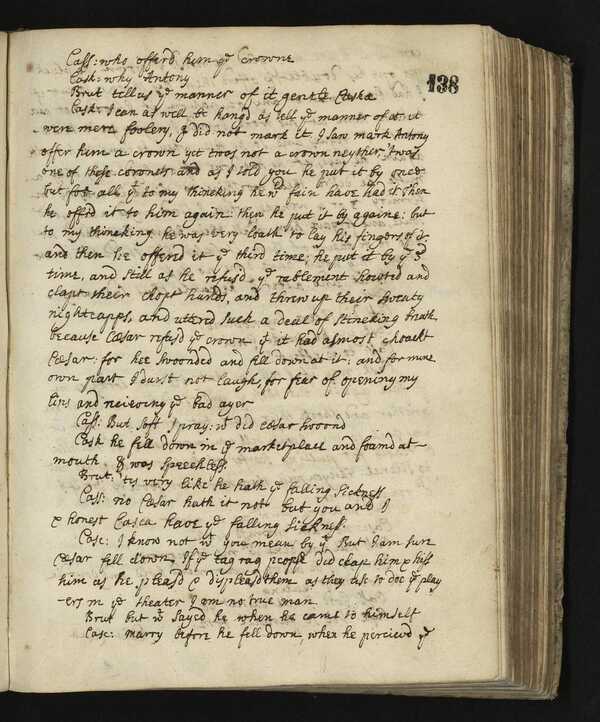 138
Cass: who offerd him yᵉ Crowne
Cask: why Antony
Brut tell us yᵉ manner of it gentle Caska
Cask. I can as well be hangd as tell yᵉ manner of it: it
were mere foolery, I did not mark it. I saw mark Antony
offer him a crown yet twas not a crown neyther, twas
one of these coronets and as I told you he put it by once
but for all yᵗ to my thincking he wᵈ fain have had it. then
he offerd it to him again: then he put it by againe: but
to my thincking he was very loath to lay his fingers of it
and then he offered it yᵉ third time; he put it by yᵉ 3ᵈ
time, and still as he refus'd yᵉ rablement showted and
clapt their chopt hands, and threw up their sweaty
nightcapps, and uttered such a deal of stincking breath
because Cæsar refus'd yᵉ crown yᵗ it had almost choackt
Cæsar: for hee swoonded and fell down at it: and for mine
own part I durst not laugh, for fear of opening my
lips and receiving yᵉ bad ayer
Cass: But soft I pray: wᵗ did cæsar swoond
Cask he fell down in yᵉ market place and foamd at
mouth & was speechless.
Brut: 'tis very like he hath yᵉ falling sickness
Cass: no Cæsar hath it not but you and I
& honest Casca have yᵉ falling sickness.
Casc: I know not wᵗ you mean by yᵗ But I am sure
Cæsar fell down. If yᵉ tag rag people did clap him & hiss
him as he pleasd & displeasd them as they use to doe yᵉ play
-ers in yᵉ theater I am no true man.
Brut but wᵗ sayed he when he came to himself
Casc: marry before he fell down, when he perceiv'd yᵉ